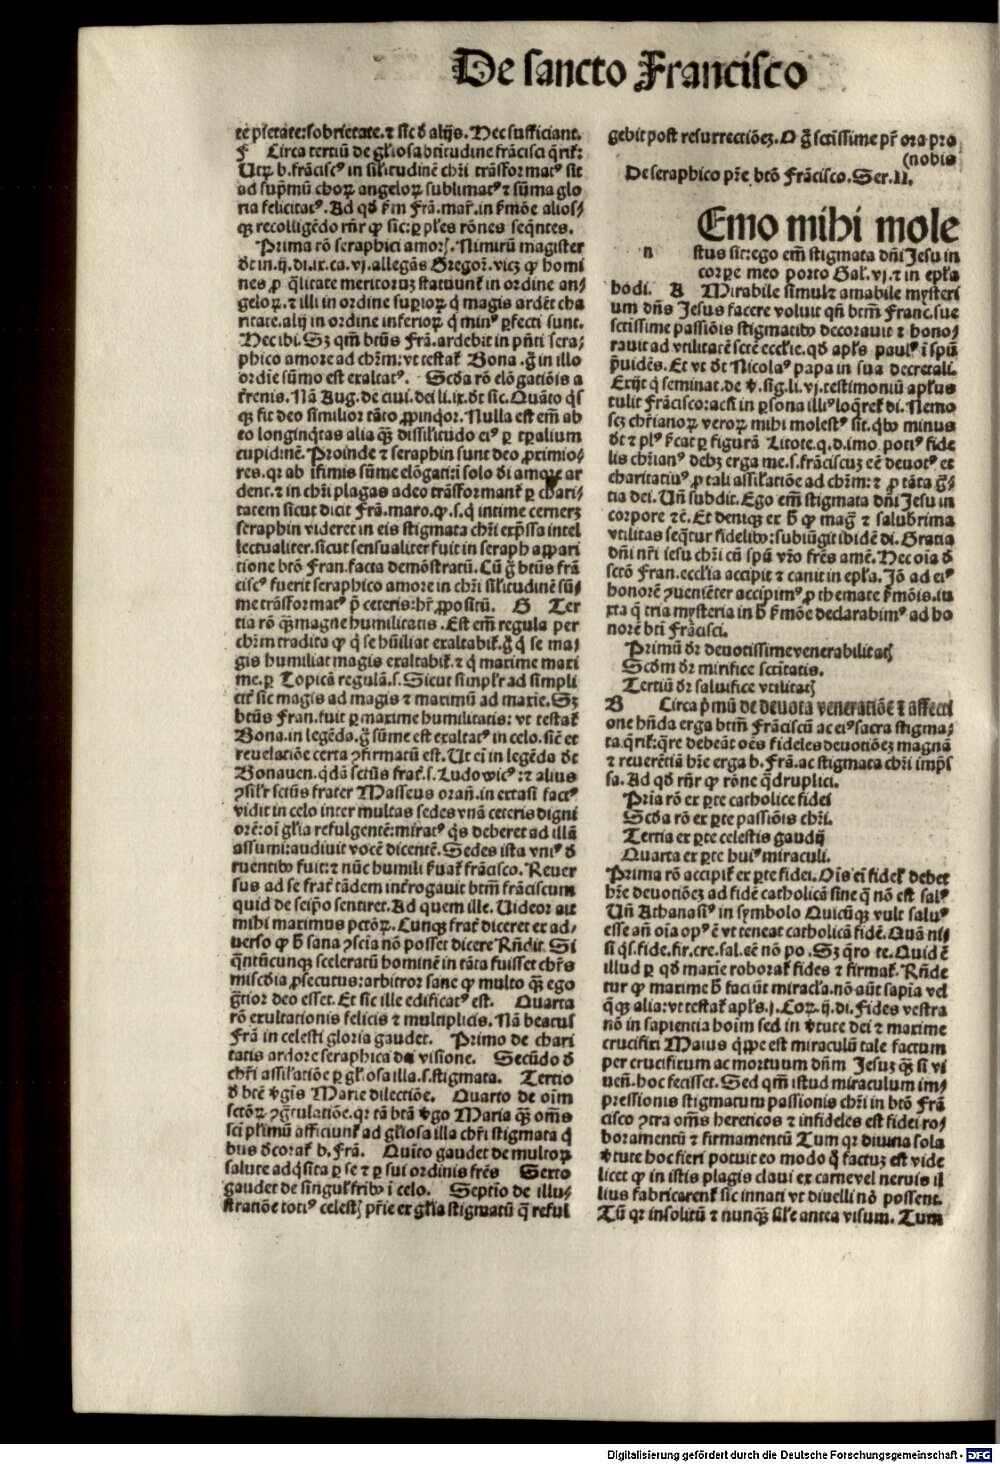 De sancto Francisco
tẽ pietate: sobrietate. ⁊ sic̃ đ alijs. Hec sufficiant.
F Circa tertiũ de gl̃iosa btĩtudine frãcisci q̃rit̃:
Utꝝ b. frãciscꝰ in sil̃itudinẽ chr̃i trãsformatꝰ sit
ad supͥmũ choꝝ angeloꝝ sublimatꝰ ⁊ sũma glo
ria felicitatꝰ. Ad qđ fr̃m Frã. mar̃. in sr̃mõe alios⸗
qꝫ recolligẽdo rñr ꝙ sic: ꝑ pl̃es rõnes seq̃ntes.
Prima rõ seraphici amorꝭ. Nimirũ magister
đt in .ij. di. ix. ca. vj. allegãs Gregor̃. vicꝫ ꝙ homi
nes ꝓ q̃litate meritoruꝫ statuunt̃ in ordine an⸗
geloꝝ. ⁊ illi in ordine supioꝝ q̃ magis ardẽt cha
ritate. alij in ordine inferioꝝ q̃ minꝰ ꝑfecti sunt.
Hec ibi. Sꝫ qm̃ btũs Frã. ardebit in pñti sera⸗
phico amore ad chr̃m: vt testat̃ Bona. g̃ in illo
ordĩe sũmo est exaltatꝰ. Scđa rõ elõgatiõis a
tr̃enis. Nã Aug. de ciui. dei li. ix. đt sic. Quãto q̃s
qꝫ fit deo similior tãto ꝓpinq̃or. Nulla est em̃ ab
eo longinq̃tas alia qꝫ dissil̃itudo eiꝰ ꝑ tꝑalium
cupidinẽ. Proinde ⁊ seraphin sunt deo ꝓximio⸗
res. qꝛ ab ĩfimis sũme elõgati: ⁊ solo đi amore ar
dent. ⁊ in chr̃i plagas adeo trãsformant̃ ꝑ chari⸗
tatem sicut dicit Frã. maro. ꝙ. s. q̃ intime cerneꝫ
seraphin videret in eis stigmata chr̃i exp̃ssa intel
lectualiter. sicut sensualiter fuit in seraph appari
tione btõ Fran. facta demõstratũ. Cũ g̃ btũs frã
ciscꝰ fuerit seraphico amore in chr̃i sil̃itudinẽ sũ⸗
me trãsformatꝰ p̃ ceteris: hr̃ ꝓpositũ. G Ter
tia rõ qꝫ magne humilitatis. Est em̃ regula per
chr̃m tradita ꝙ q̃ se hũiliat exaltabit̃. g̃ q̃ se ma⸗
gis humiliat magis exaltabit̃. ⁊ q̃ maxime maxi
me. ꝑ Topicã regulã. s. Sicut simpl̃r ad simpli
citr̃ sic magis ad magis ⁊ maximũ ad maxie. Sꝫ
btũs Fran. fuit ꝑ maxime humilitatis: vt testat̃
Bona. in legẽda. g̃ sũme est exaltatꝰ in celo. sic̃ et
reuelatiõe certa ↄfirmatũ est. Ut eĩ in legẽda đt
Bonauen. q̃dã sctũs frat̃. s. Ludowicꝰ: ⁊ alius
ↄsil̃r sctũs frater Masseus orañ. in extasi factꝰ
vidit in celo inter multas sedes vnã ceteris digni
orẽ: oĩ gl̃ia refulgentẽ: miratꝰ q̃s deberet ad illã
assumi: audiuit vocẽ dicentẽ. Sedes ista vniꝰ đ
ruentibꝰ fuit: ⁊ nũc humili ẜuat̃ frãcisco. Reuer
sus ad se frat̃ tãdem intr̃rogauit btm̃ frãciscum
quid de seip̃o sentiret. Ad quem ille. Uideor ait
mihi maximus pctõꝝ. Cunqꝫ frat̃ diceret ex ad⸗
uerso ꝙ ħ sana ↄscĩa nõ posset dicere Rñdit. Si
q̃ntũcunqꝫ sceleratũ hominẽ in tãta fuisset chr̃s
miscđia ꝓsecutus: arbitror sane ꝙ multo qꝫ ego
g̃tior deo esset. Et sic ille edificatꝰ est. Quarta
rõ exultationis felicis ⁊ multiplicis. Nã beatus
Frã in celesti gloria gaudet. Primo de chari
tatis ardore seraphica de visione. Secũdo đ
chr̃i assil̃atiõe ꝑ gl̃iosa illa. s. stigmata. Tertio
đ btẽ ꝟgĩs Marie dilectiõe. Quarto de oĩm
sctõꝝ ↄg̃tulatiõe. qꝛ tã btã ꝟgo Maria qꝫ om̃s
scĩ pl̃imũ afficiunt̃ ad gl̃iosa illa chr̃i stigmata q̃
bus đcorat̃ b. Frã. Quĩto gaudet de multoꝝ
salute adq̃sita ꝑ se ⁊ ꝑ sui ordinis fr̃es Sexto
gaudet de singul̃ fr̃ibꝰ ĩ celo. Septĩo de illu⸗
stratiõe totiꝰ celestꝭ pr̃ie ex gl̃ia stigmatũ q̃ reful
gebit post resurrectiõeꝫ. O g̃ sctĩssime pr̃ ora pro
(nobis
De seraphico pr̃e btõ Frãcisco. Ser. II.
Emo mihi mole
n stus sit: ego em̃ stigmata dñi Jesu in
corpore meo porto Gal. vj. ⁊ in epl̃a
hodi. A Mirabile simul ⁊ amabile mysteri
um dñs Jesus facere voluit qñ btm̃ Franc̃. sue
sctĩssime passiõis stigmatibꝰ decorauit ⁊ hono⸗
rauit ad vtilitatẽ sctẽ eccl̃ie. qđ apl̃s paulꝰ ĩ spũ
p̃uidẽs. Et vt đt Nicolaꝰ papa in sua decretali.
Exijt q̃ seminat. de ꝟ. sig. li. vj. testimoniũ apl̃us
tulit Frãcisco: ac si in ꝑsona illiꝰ loq̃ret̃ di. Nemo
scꝫ chr̃ianoꝝ veroꝝ mihi molestꝰ sit. qđ minus
đt ⁊ plꝰ s̃cat ꝑ figurã Litote. q. d. imo potiꝰ fide
lis chr̃ianꝰ debꝫ erga me. s. frãciscuꝫ eẽ deuotꝰ et
charitatiuꝰ ꝓ tali assilatiõe ad chr̃m: ⁊ ꝓ tãta g̃⸗
tia dei. Uñ subdit. Ego em̃ stigmata dñi Jesu in
corpore ⁊c̃. Et deniqꝫ ex ħ ꝙ mag̃ ⁊ saluberrima
vtilitas seq̃tur fidelibꝰ: subiũgit ibidẽ di. Gratia
dñi nr̃i iesu chr̃i cũ spũ vr̃o fr̃es amẽ. Hec oĩa đ
sctõ Fran. eccl̃ia accipit ⁊ canit in epl̃a. Jõ ad eiꝰ
honorẽ ↄueniẽter accipimꝰ ꝓ themate sr̃mõis. iu
xta q̃ tria mysteria in ħ sr̃mõe declarabimꝰ ad ho
norẽ btĩ Frãcisci.
Primũ đr deuotissime venerabilitatꝭ
Scđm đr mirifice sctĩtatis.
Tertiũ đr saluifice vtilitatꝭ
B Circa p̃mũ de deuota veneratiõe ⁊ affecti
one hñda erga btm̃ Frãciscũ ac eiꝰ sacra stigma⸗
ta. q̃rit̃: q̃re debeãt oẽs fideles deuotiõeꝫ magnã
⁊ reuerẽtiã hr̃e erga b. Frã. ac stigmata chr̃i imp̃s
sa. Ad qđ rñr ꝙ rõne q̃druplici.
Pria rõ ex ꝑte catholice fidei
Scđa rõ ex ꝑte passiõis chr̃i.
Tertia ex ꝑte celestis gaudij
Quarta ex ꝑte huiꝰ miraculi.
Prima rõ accipit̃ ex ꝑte fidei. Oĩs eĩ fidel̃ debet
hr̃e deuotiõeꝫ ad fidẽ catholicã sine q̃ nõ est salꝰ
Uñ Athanasiꝰ in symbolo Quicũqꝫ vult saluꝰ
esse añ oĩa opꝰ ẽ vt teneat catholicã fidẽ. Quã ni⸗
si q̃s. fide. fir. cre. sal. eẽ nõ po. Sꝫ q̃ro te. Quid ẽ
illud ꝑ qđ maxĩe roborat̃ fides ⁊ firmat̃. Rñde
tur ꝙ maxime ħ faciũt miracl̃a. nõ aũt sapĩa vel
q̃qꝫ alia: vt testat̃ apl̃s. j. Coꝝ. ij. di. Fides vestra
nõ in sapientia hoĩm sed in ꝟtute dei ⁊ maxime
crucifixi Maius q̃ppe est miraculũ tale factum
per crucifixum ac mortuum dñm Jesuꝫ qꝫ si vi
uen̄. hoc fecisset. Sed qm̃ istud miraculum im⸗
pressionis stigmatum passionis chr̃i in btõ Frã
cisco ↄtra om̃s hereticos ⁊ infideles est fidei ro⸗
boramentũ ⁊ firmamentũ Tum qꝛ diuina sola
ꝟtute hoc fieri potuit eo modo q̃ factuꝫ est vide
licet ꝙ in istis plagis claui ex carne vel neruis il
lius fabricarent̃ sic innati vt diuelli nõ possent.
Tũ qꝛ insolitũ ⁊ nunqꝫ sil̃e antea visum. Tum
Digitalisierung gefördert durch die Deutsche Forschungsgemeinschaft - DFG